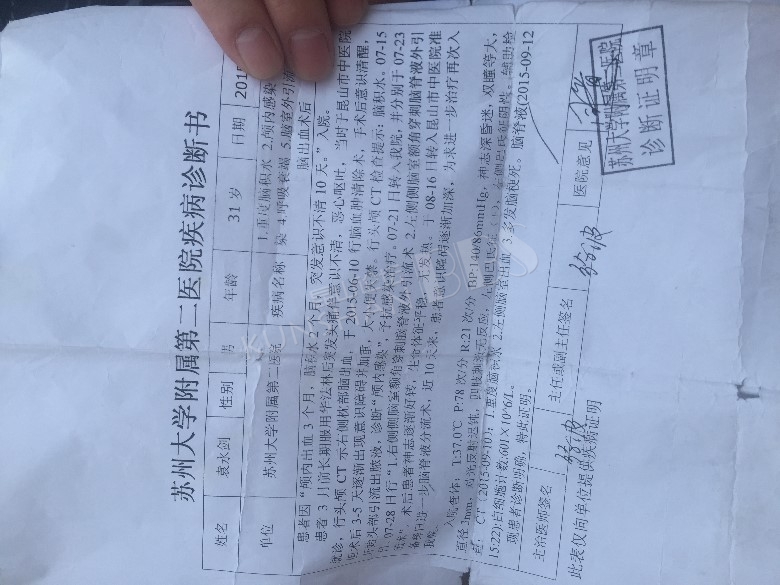 苏州大学附属第二医院疾病诊断书
姓名 袁水剑 性别 男 年龄 31 岁 日期 201
单位 苏州大学附属第二医院 疾病名称 1.重度脑积水 2.颅内感染
染 4.呼吸衰竭 5.脑室外引流
脑出血术后
患者因“颅内出血 3 个月，脑积水 2 个月，突发意识不清 10 天。”入院。
患者 3 月前长期服用华法林后突发头痛伴意识不清，恶心呕吐，当时于昆山市中医院
就诊，行头颅 CT 示右侧枕部脑出血，于 2015-06-10 行脑血肿清除术，手术后意识清醒，
术后 3-5 天逐渐出现意识障碍并加重，大小便失禁。行头颅 CT 检查提示：脑积水。07-15
引流出脓液，诊断“颅内感染”，予抗感染治疗。07-21日转入我院，并分别于 07-23
07-28 日行“1.右侧侧脑室额角穿刺脑脊液外引流术 2.左侧侧脑室额角穿刺脑脊液外引
流术”。术后患者神志逐渐好转，生命体征平稳，无发热。于 08-16 日转入昆山市中医院准
备择日进一步脑脊液分流术，近 10 天来，患者意识障碍逐渐加深，为求进一步治疗再次入
我院。
T:37.0℃ P:78 次/分 R:21 次/分 BP:140/86mmHg，神志深昏迷，双瞳等大，
直径 3mm，对光反射迟钝，四肢刺痛无反应，
CT（2015-09-10）：1.重度脑积水 2.左侧脑室出血 3.多发脑梗死。脑脊液(2015-09-12
15:22)白细胞计数:601*10^6/L。
现患者诊断明确，特此证明。
主治医师签名 主任或副主任签名 医院意见
此表仅向单位提供疾病证明
苏州大学附属第二医院
诊断证明章